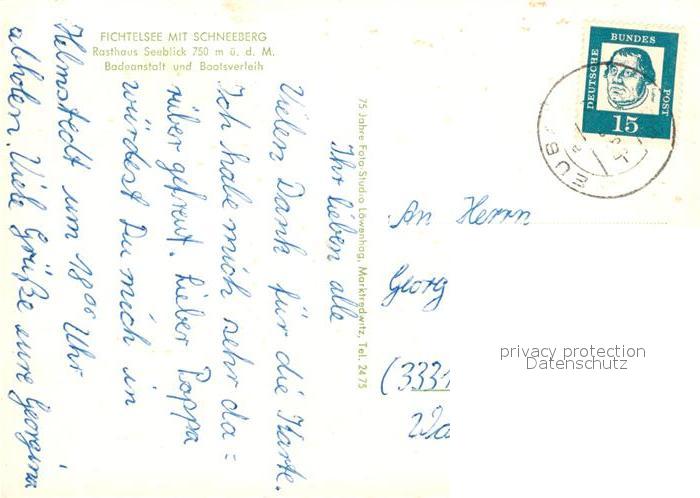 FICHTELSEE MIT SCHNEEBERG
Rasthaus Seeblick 750 m ü. d. M.
Badeanstalt und Bootsverleih
Ihr lieben alle
Vielen Dank für die Karte.
Ich habe mich sehr da=
rüber gefreut. Lieber Pappa
würdest Du mich in
Helmstedt um 18⁰⁰ Uhr
abholen. Viele Grüße eure Georgina
75 Jahre Foto-Studio Löwenhag, Marktredwitz, Tel. 2475
DEUTSCHE BUNDES POST
15
An Herrn
Georg
(333
privacy protection
Datenschutz